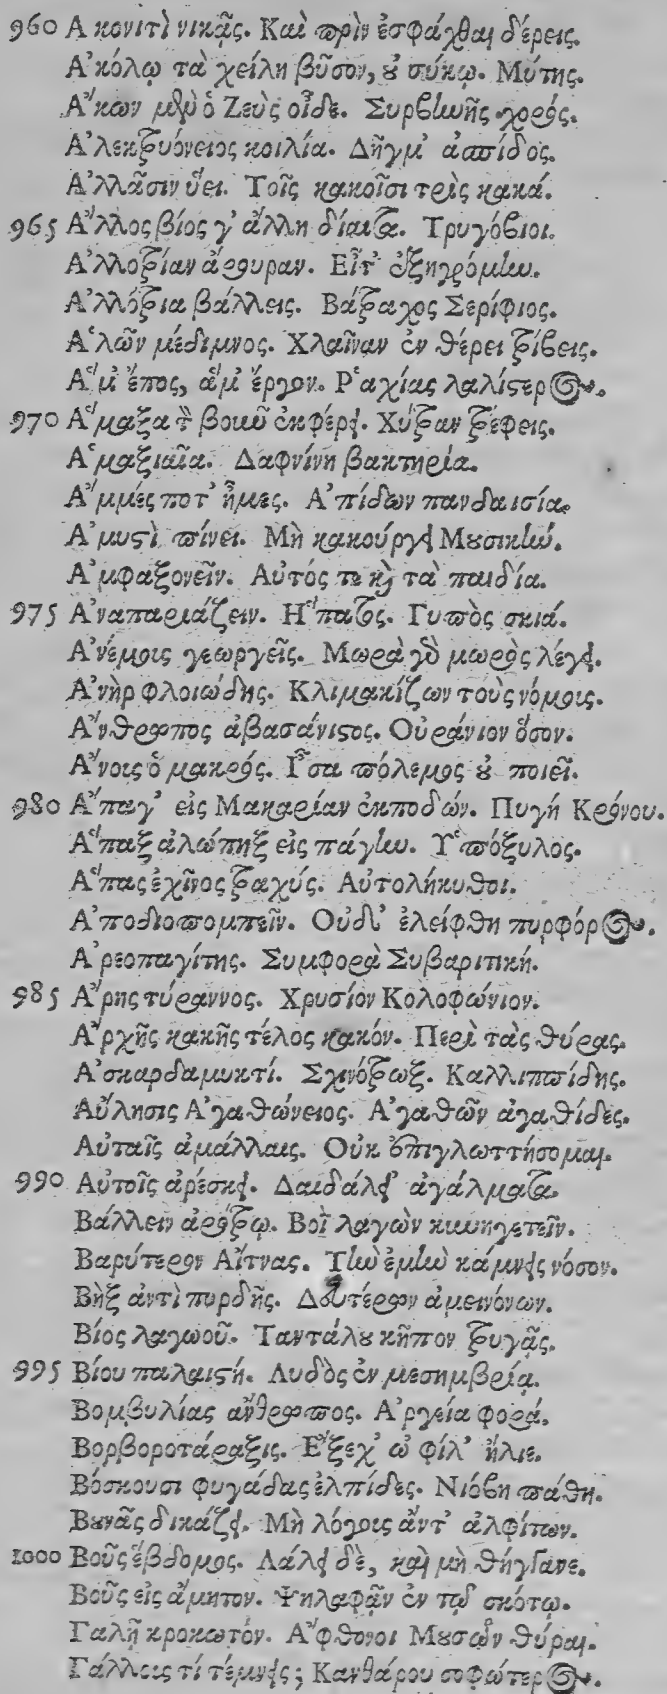 960 Ἀκονιτὶ νικᾷς. Καὶ πρὶν ἐσφάχθαι δέρεις.
Ἀκόλῳ τὰ χείλη βῦσον, οὐ σύκῳ. Μύτης.
Ἄκων μὲν ὁ Ζεὺς οἶδε. Συρβηνῆς χορός.
Ἀλεκτρυόνειος κοιλία. Δῆγμ' ἀσπίδος.
Ἀλλᾶσιν ὕει. Τοῖς κακοῖσι τρὶς κακά.
965 Ἄλλος βίος γ' ἄλλη δίαιτα. Τρυγόβιοι.
Ἀλλοτρίαν ἄρουραν. Εἶτ' ἐξηγρόμην.
Ἀλλότρια βάλλεις. Βάτραχος Σερίφιος.
Ἁλῶν μέδιμνος. Χλαῖναν ἐν θέρει τρίβεις.
Ἅμ' ἔπος, ἅμ' ἔργον. Ῥαχίας λαλίστερος.
970 Ἅμαξα τὸν βοῦν ἐκφέρει. Χύτραν τρέφεις.
Ἁμαξιαῖα. Δαφνίνη βακτηρία.
Ἄμμές ποτ' ἦμες. Ἀπίδων πανδαισία.
Ἀμυστὶ πίνει. Μὴ κακούργει Μουσικήν.
Ἀμφαξονεῖν. Αὐτός τε καὶ τὰ παιδία.
975 Ἀναπαριάζειν. Ἥπατος. Γυπὸς σκιά.
Ἀνέμοις γεωργεῖς. Μωρὰ γὰρ μωρὸς λέγει.
Ἀνὴρ φλοιώδης. Κλιμακίζων τοὺς νόμοις.
Ἄνθρωπος ἀβασάνιστος. Οὐράνιον ὅσον.
Ἄνοις ὁ μακρός. Ἶσα πόλεμος οὐ ποιεῖ.
980 Ἄπαγ' εἰς Μακαρίαν ἐκποδών. Πυγή Κρόνου.
Ἅπαξ ἀλώπηξ εἰς πάγην. Ὑπόξυλος.
Ἅπας ἐχῖνος τραχύς. Αὐτολήκυθοι.
Ἀποδιοπομπεῖν. Οὐδ' ἐλείφθη πυρφόρος.
Ἀρεοπαγίτης. Συμφορὰ Συβαριτική.
985 Ἄρης τύραννος. Χρυσίον Κολοφώνιον.
Ἄρχῆς κακῆς τέλος κακόν. Περὶ τὰς θύρας.
Ἀσκαρδαμυκτί. Σχινότρωξ. Καλλιππίδης.
Αὔλησις Ἀγαθώνειος. Ἀγαθῶν ἀγαθίδες.
Αὐταῖς ἀμάλλαις. Οὐκ ἐπιγλωττήσομαι.
990 Αὐτοῖς ἀρέσκει. Δαιδάλει' ἀγάλματα.
Βάλλειν ἀρότρῳ. Βοῒ λαγὼν κυνηγετεῖν.
Βαρύτερον Αἴτνας. Τὴν ἐμὴν κάμνεις νόσον.
Βὴξ ἀντὶ πορδῆς. Δευτέρων ἀμεινόνων.
Βίος λαγωοῦ. Ταντάλου κῆπον τρυγᾷς.
995 Βίου παλαιστή. Λυδὸς ἐν μεσημβρίᾳ.
Βομβυλίας ἄνθρωπος. Ἀργεία φορά.
Βορβοροτάραξις. Ἔξεχ' ὦ φίλ' ἥλιε.
Βόσκουσι φυγάδας ἐλπίδες. Νιόβη πάθη.
Βουνᾶς δικάζει. Μὴ λόγοις ἀντ' ἀλφίτων.
1000 Βοῦς ἕβδομος. Λάλει δὲ, καὶ μὴ θήγγανε.
Βοῦς εἰς ἄμητον. Ψηλαφᾷν ἐν τῷ σκότῳ.
Γαλῇ κροκωτόν. Ἄφθονοι Μουσῶν θύραι.
Γάλλοις τί τέμνεις; Κανθάρου σοφώτερος.